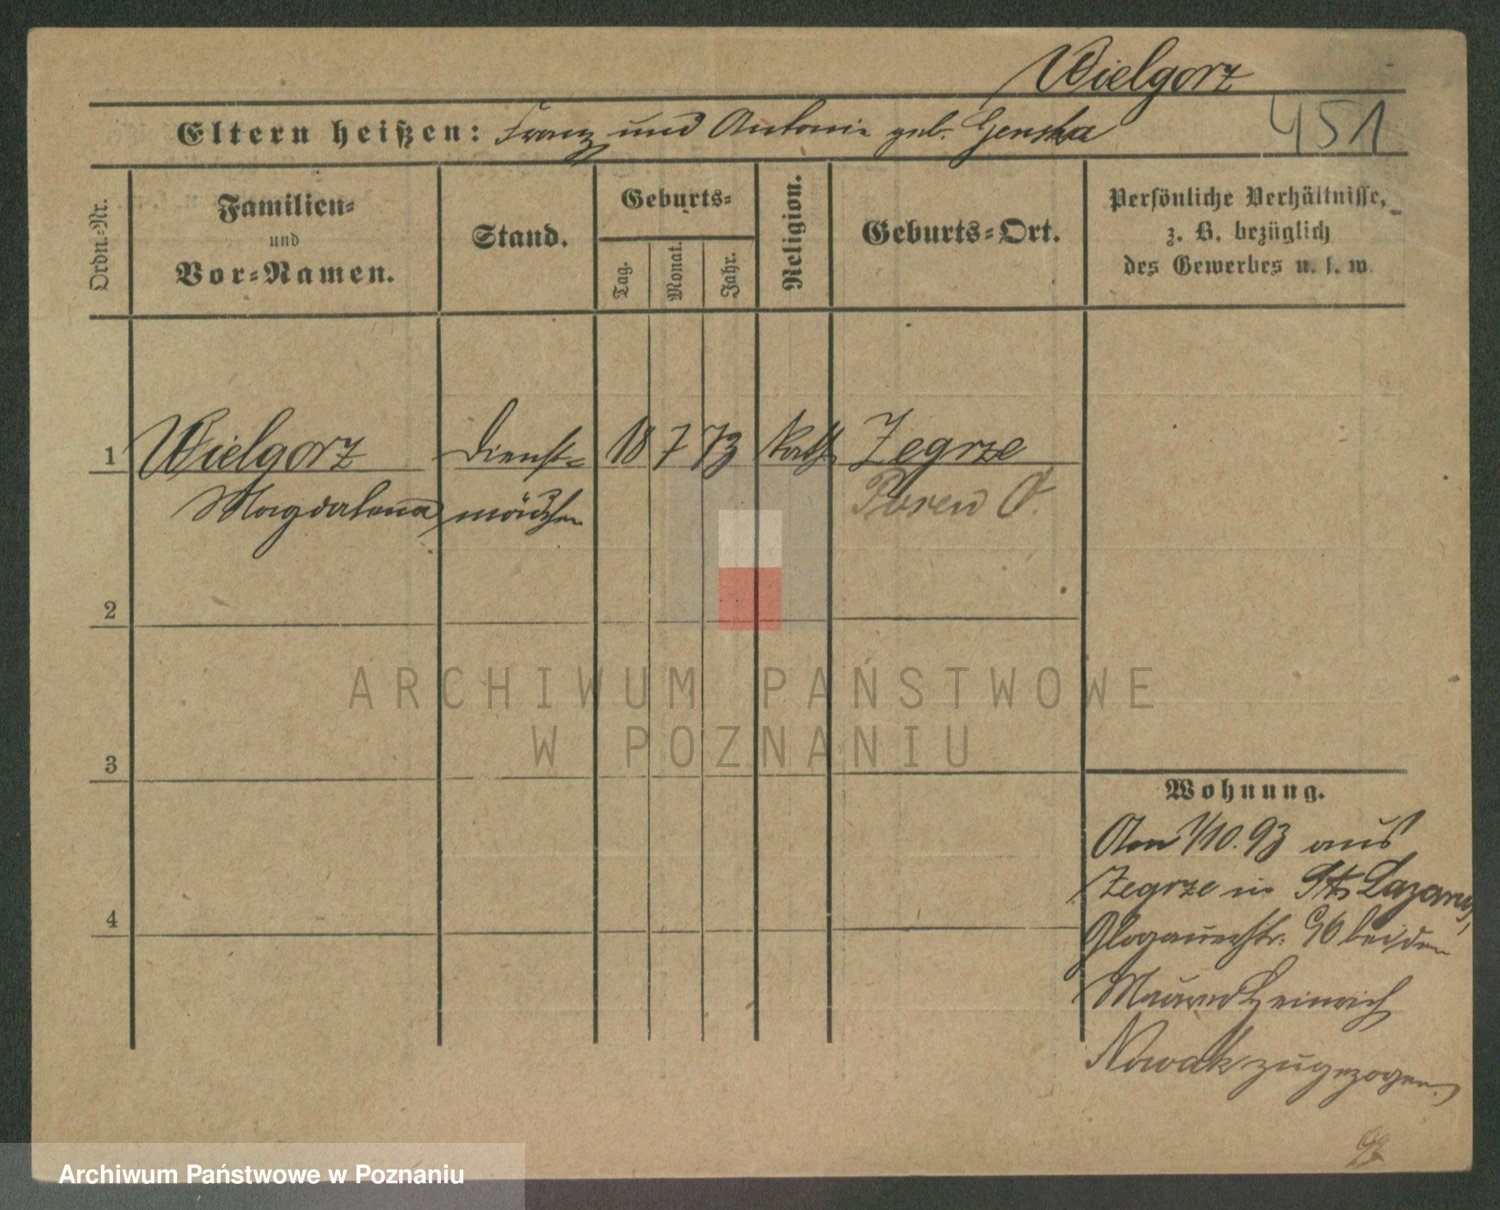 Wielgorz
451
Eltern heißen: Franz und Antonie geb. Genska
Ordn.-Nr.
Familien-
und
Vor-Namen.
Stand.
Geburts-
Tag.
Monat.
Jahr.
Religion.
Geburts-Ort.
Persönliche Verhältnisse,
z. B. bezüglich
des Gewerbes u. s. w.
1 Wielgorz Dienst- 18 7 73 Kath Zegrze
Magdalena mädchen Posen O.
2
3
4
Wohnung.
Am 1/10.93 aus
Zegrze in St. Lazarus,
Glogauerstr. 96 bei dem
Maurer Heinrich
Nowak zugezogen.
ARCHIWUM PAŃSTWOWE
W POZNANIU
Archiwum Państwowe w Poznaniu